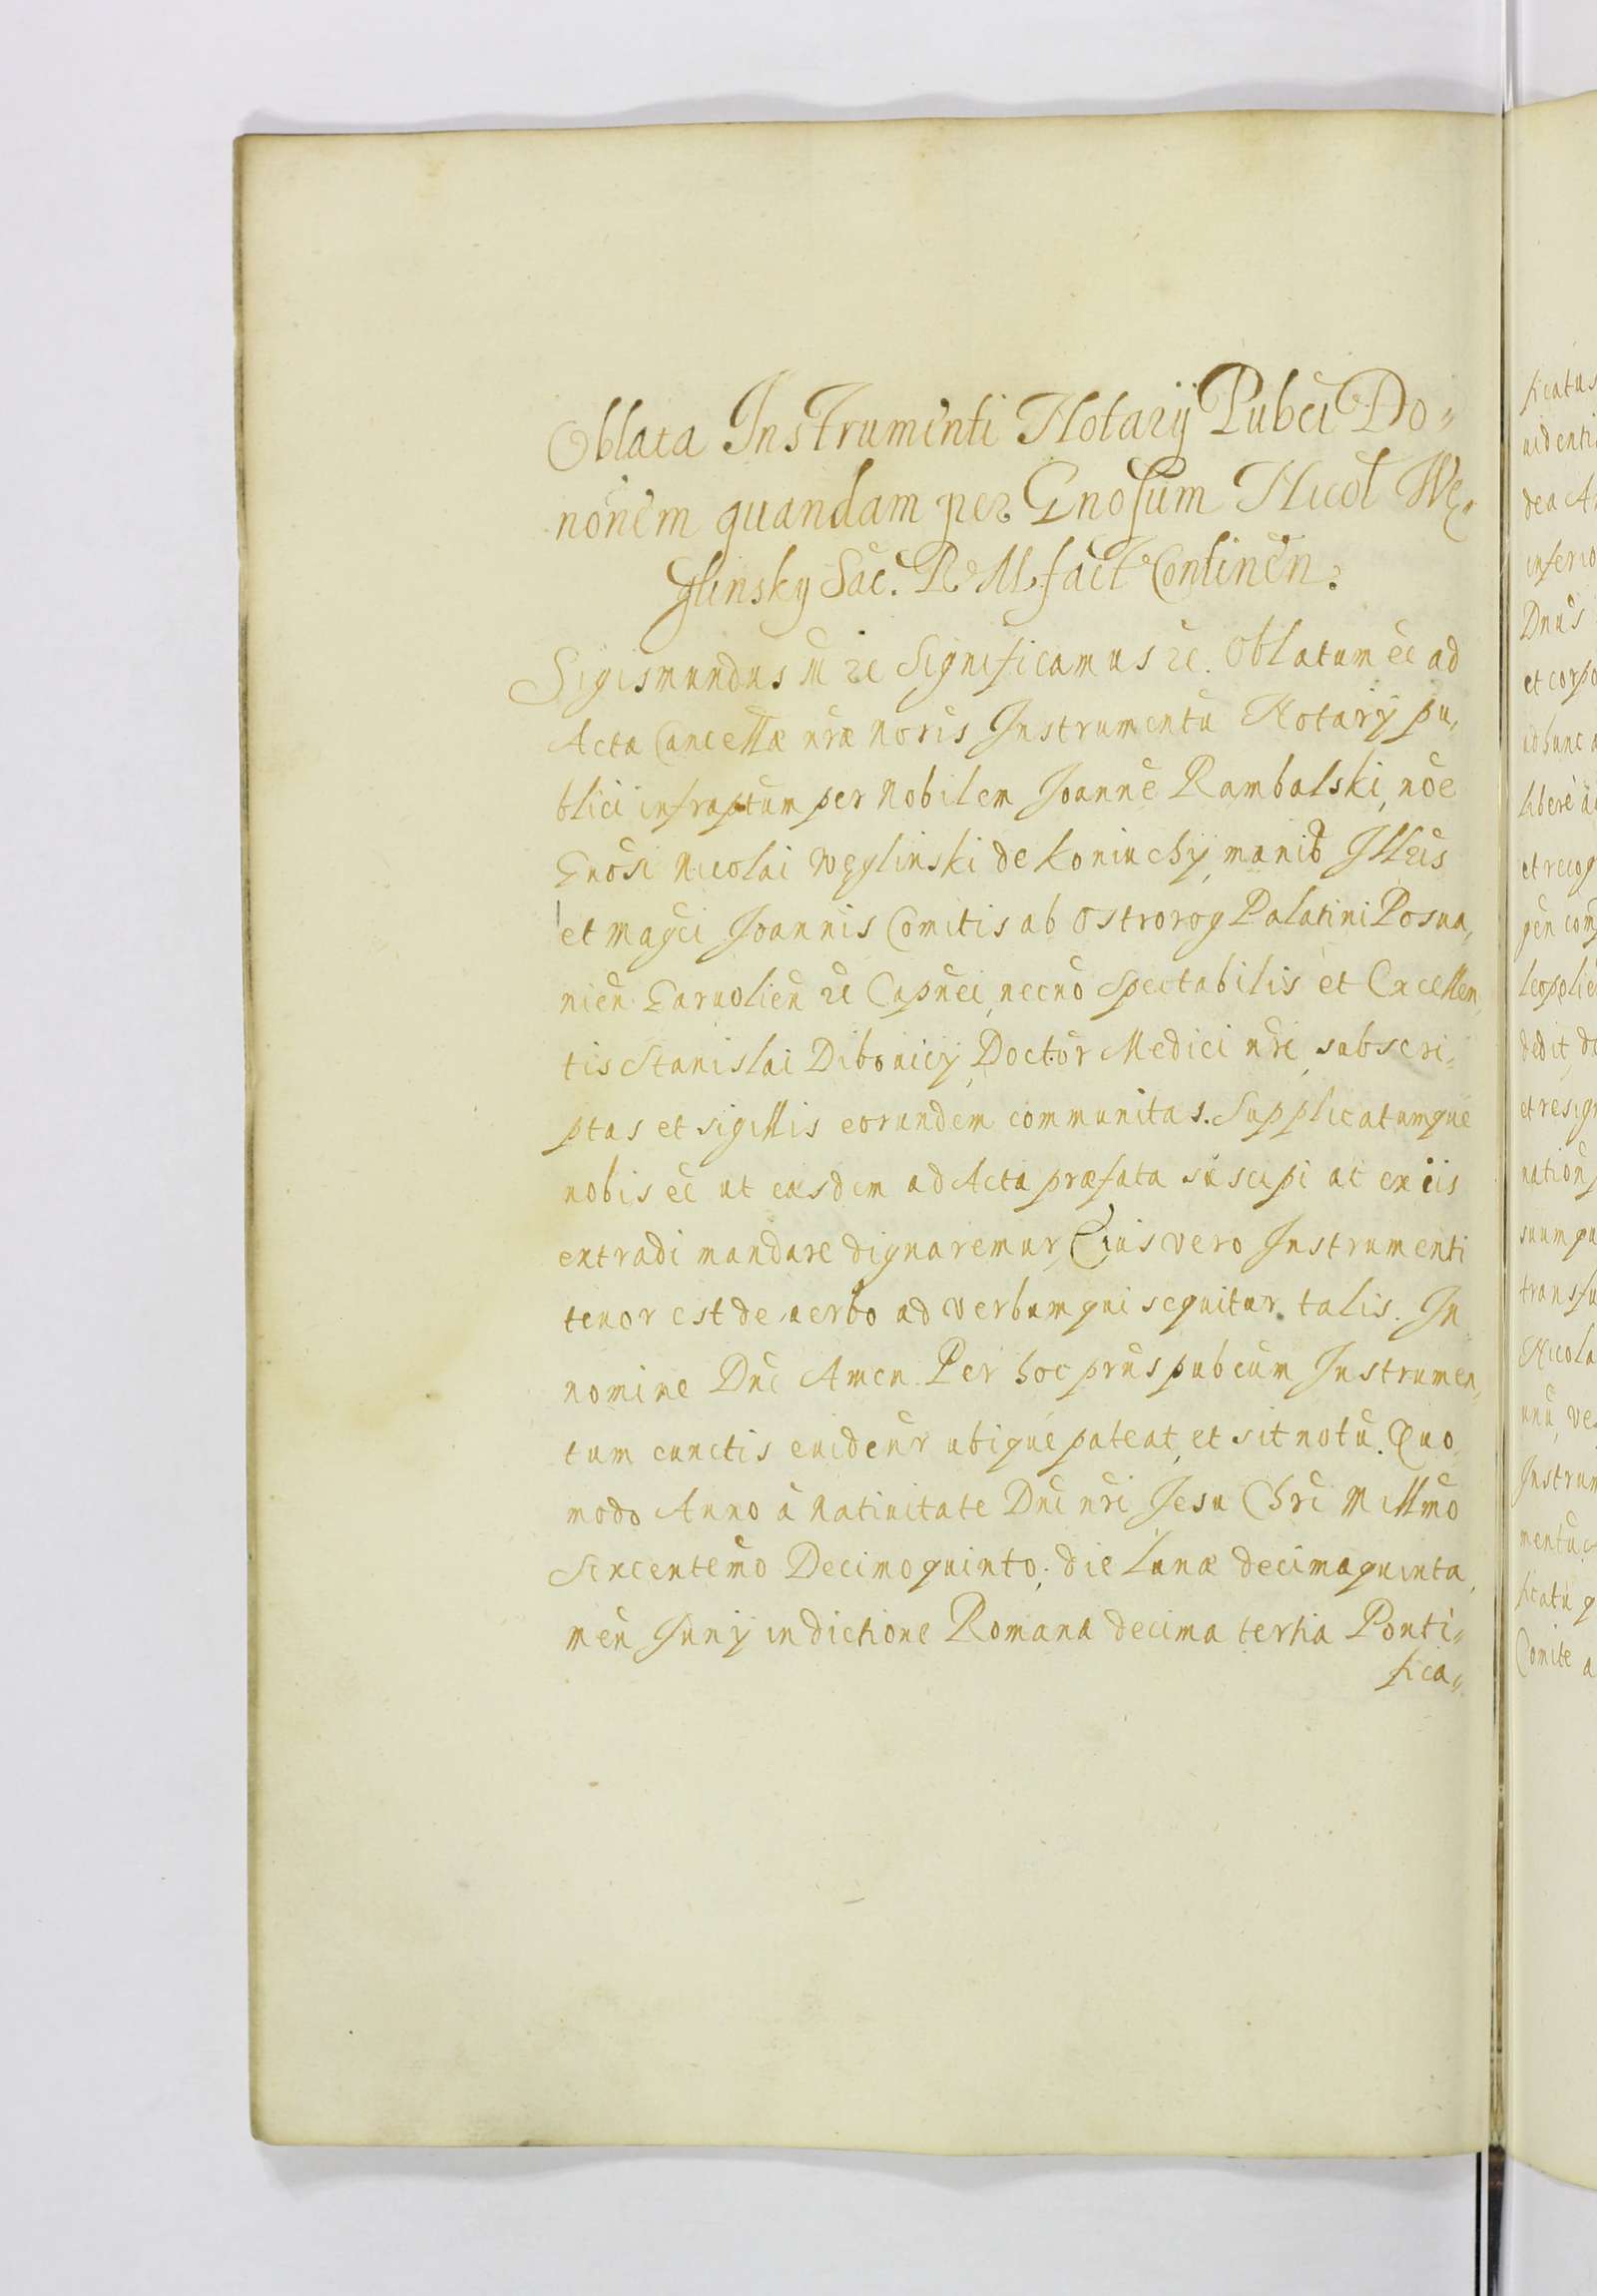 Oblata Instrumenti Notarÿ Pubci Do„
nonem quandam per Gnosum Nicol Wę„
glinsky Sac. R. M. fact Continen.
Sigismundus III &c Significamus &c. Oblatum ee ad
Acta Cancellæ nræ noris Instrumentū Notarÿ pu„
blici infraptum per Nobilem Joannē Rambalski, noe
Gnosi Nicolai Węglinski de Koniuchÿ, manib Illris
et magci Joannis Comitis ab Ostrorog Palatini Posna„
nien Garuolien &c Capnei, necnō Spectabilis et Excellen„
tis Stanislai Dibonicÿ, Doctor Medici nri, subscri„
ptas et sigillis eorundem communitas. Supplicatumque
nobis ee ut easdem ad Acta præfata suscipi ac ex iis
extradi mandare dignaremur, Cuius vero Instrumenti
tenor est de uerbo ad verbum qui sequitur talis. In
nomine Dni Amen. Per hoc prns pubcum Instrumen„
tum cunctis euidenr ubique pateat, et sit notū. Quo
modo Anno à Natiuitate Dni nri Jesu Chri Millmo
Sexcentemo Decimo quinto; die Lunæ decima quinta,
men Junÿ indictione Romana decima tertia Ponti„
fica„
ficatus
uidenti
dea
inferio
Dnus
et corpo
ad hunc a
libere
et recog
gen com
leopolie
dedit, de
et resig
nation
suum pu
transfu
Nicola
unū, ve
Instrum
mentū
ficatu
Comite a